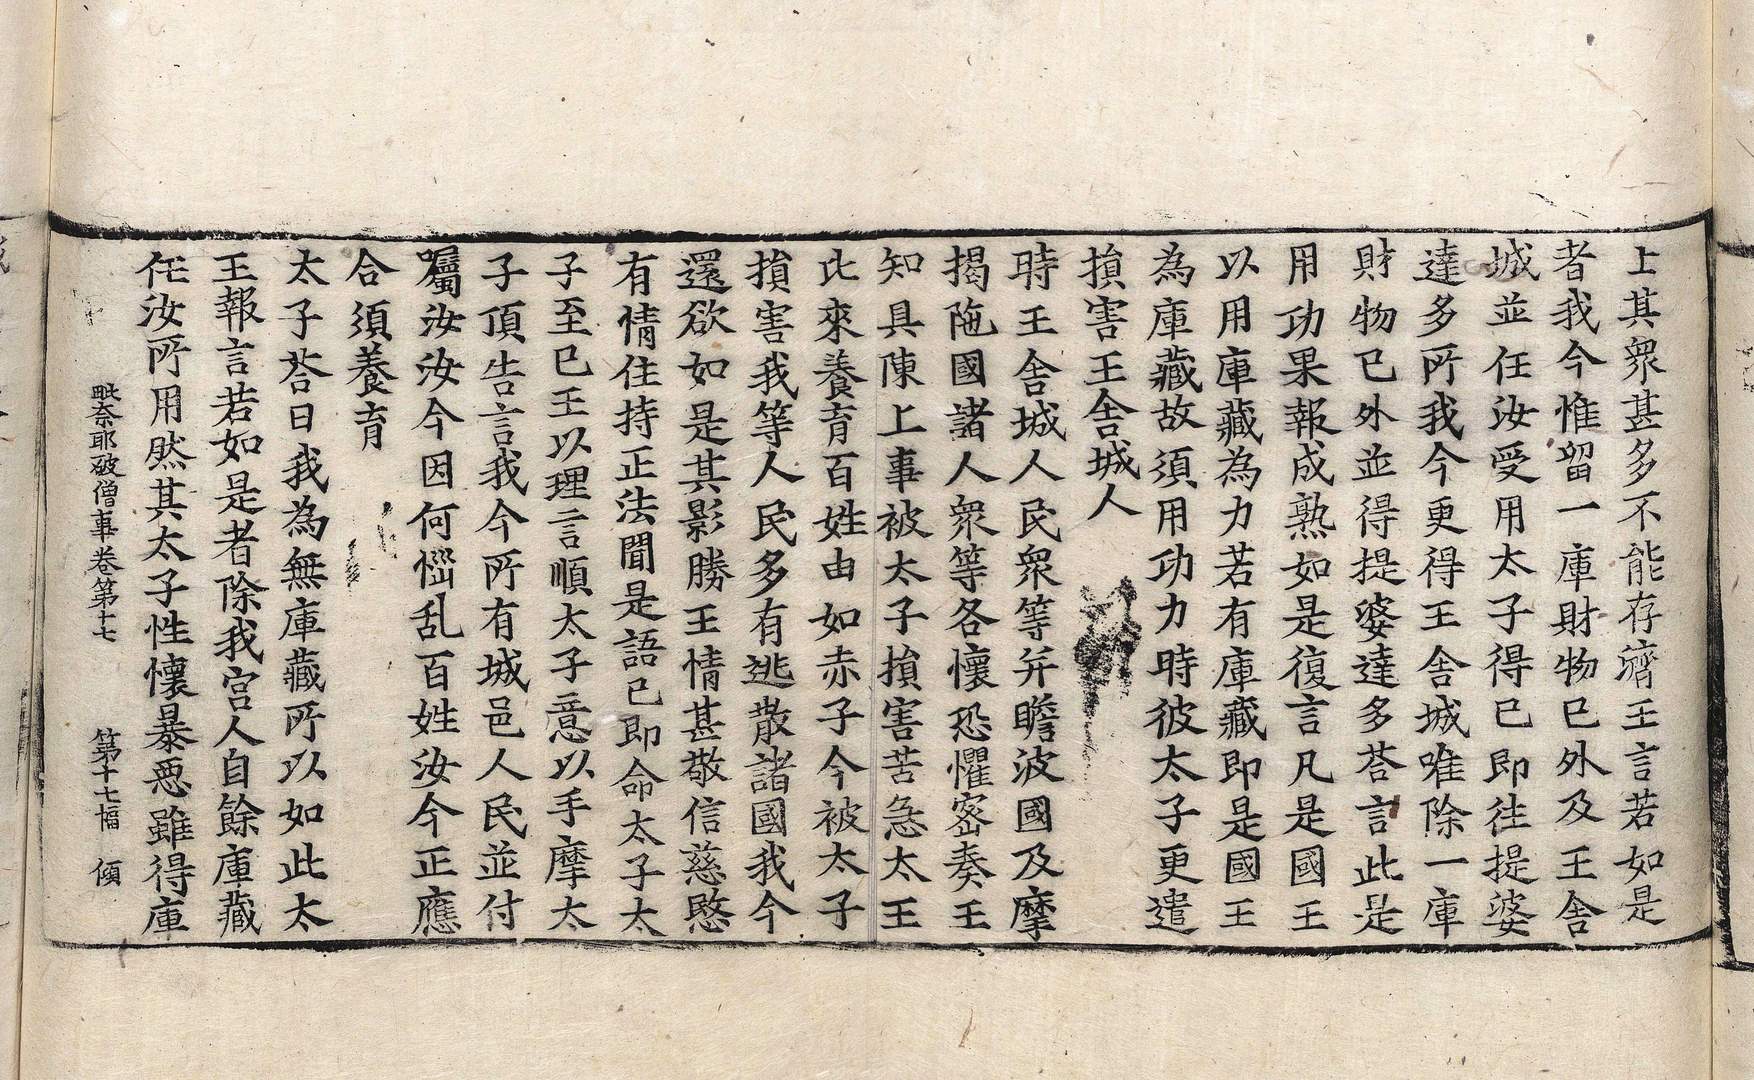 上其衆甚多不能存濟王言若如是
者我今惟留一庫財物已外及王舍
城並任汝受用太子得已即往提婆
達多所我今更得王舍城唯除一庫
財物已外並得提婆達多荅言此是
用功果報成熟如是復言凡是國王
以用庫藏為力若有庫藏即是國王
為庫藏故須用功力時彼太子更遣
損害王舍城人
時王舍城人民衆等并瞻波國及摩
揭陁國諸人衆等各懷恐懼密奏王
知具陳上事被太子損害苦急太王
此來養育百姓由如赤子今被太子
損害我等人民多有逃散諸國我今
還欲如是其影勝王情甚敬信慈愍
有情住持正法聞是語已即命太子太
子至已王以理言順太子意以手摩太
子頂告言我今所有城邑人民並付
囑汝汝今因何惱乱百姓汝今正應
合須養育
太子荅曰我為無庫藏所以如此太
王報言若如是者除我宮人自餘庫藏
任汝所用然其太子性懷暴惡雖得庫
毗奈耶破僧事卷第十七 第十七幅 傾